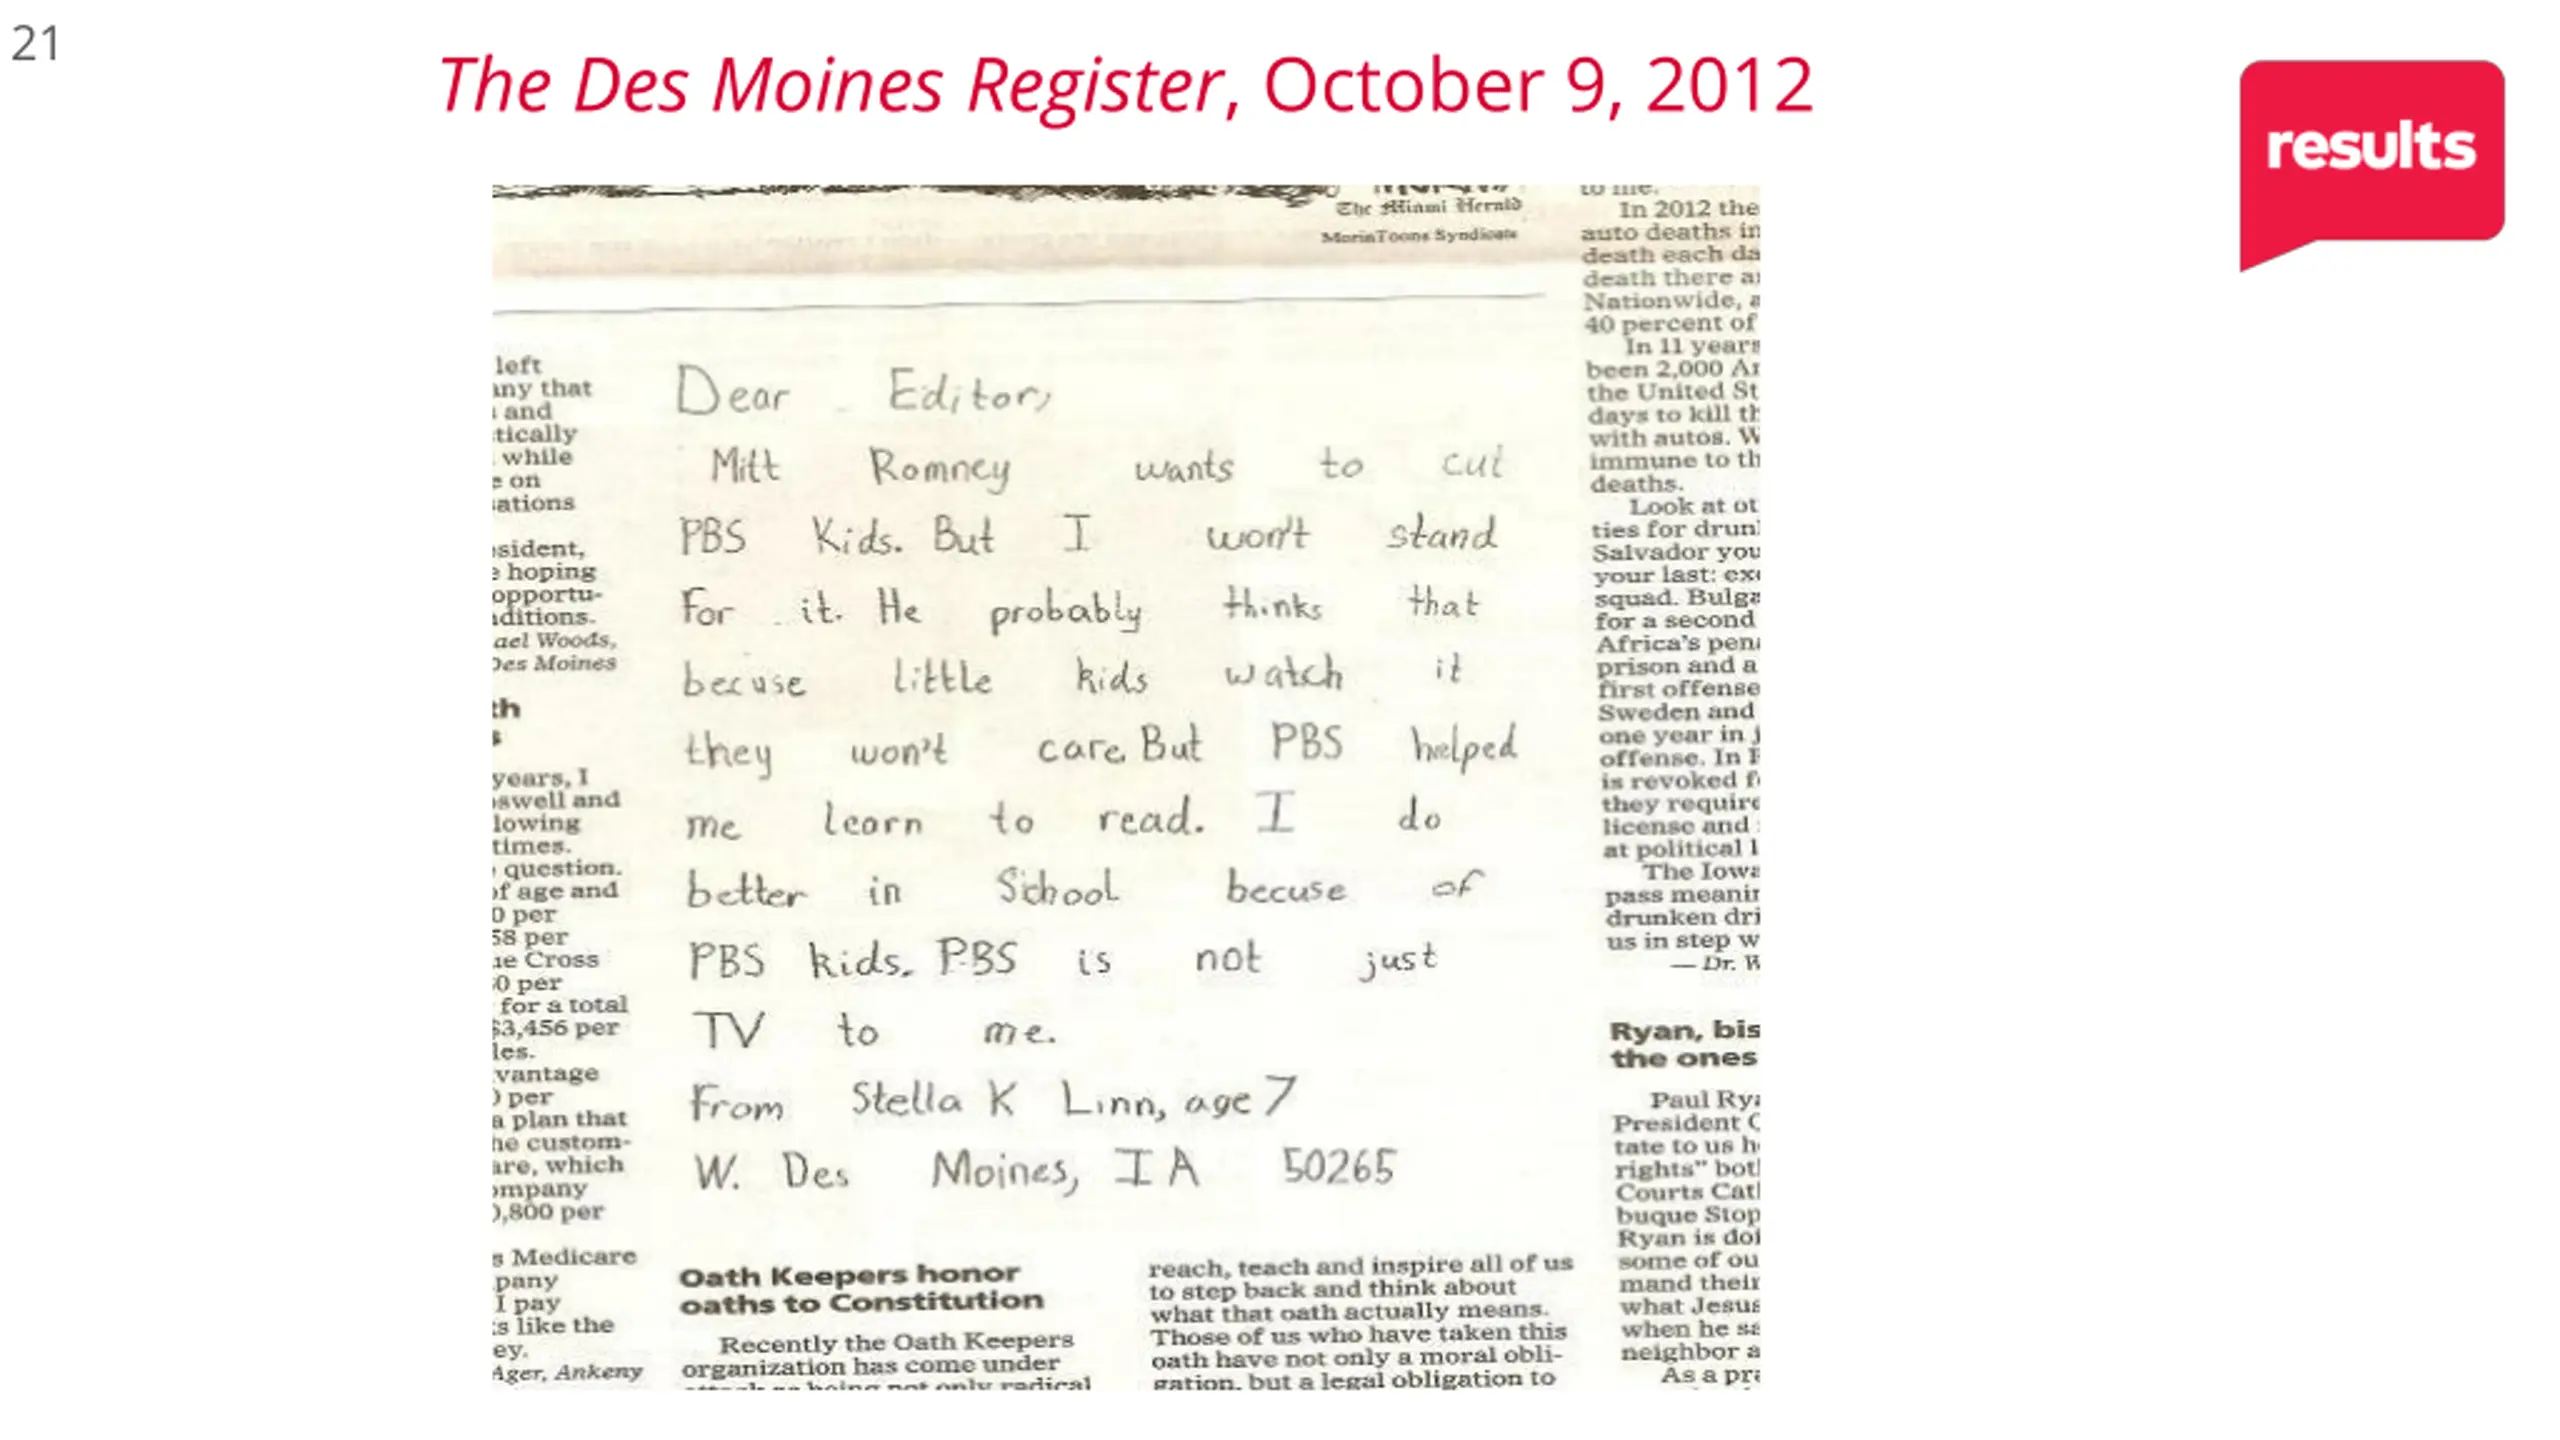 21
The Des Moines Register, October 9, 2012
results
The Miami Herald
MorinToons Syndicate
left
any that
and
tically
while
on
ations
sident,
hoping
opportu-
ditions.
ael Woods,
Des Moines
th
years, I
swell and
lowing
times.
question.
of age and
0 per
58 per
ue Cross
0 per
for a total
$3,456 per
les.
vantage
0 per
a plan that
he custom-
are, which
ompany
0,800 per
s Medicare
pany
I pay
s like the
ey.
Ager, Ankeny
Dear Editor,
Mitt Romney wants to cut
PBS Kids. But I won't stand
For it. He probably thinks that
becuse little kids watch it
they won't care. But PBS helped
me learn to read. I do
better in School becuse of
PBS kids. PBS is not just
TV to me.
From Stella K Linn, age 7
W. Des Moines, IA 50265
Oath Keepers honor
oaths to Constitution
Recently the Oath Keepers
organization has come under
attack as being not only radical
reach, teach and inspire all of us
to step back and think about
what that oath actually means.
Those of us who have taken this
oath have not only a moral obli-
gation, but a legal obligation to
to me.
In 2012 the
auto deaths in
death each da
death there a
Nationwide, a
40 percent of
In 11 years
been 2,000 A
the United St
days to kill th
with autos. W
immune to th
deaths.
Look at ot
ties for drun
Salvador you
your last: ex
squad. Bulga
for a second
Africa's pen
prison and a
first offense
Sweden and
one year in j
offense. In
is revoked f
they require
license and
at political l
The Iowa
pass meanin
drunken dri
us in step w
— Dr. W
Ryan, bis
the ones
Paul Rya
President O
tate to us h
rights" bot
Courts Cat
buque Stop
Ryan is doi
some of ou
mand their
what Jesus
when he sa
neighbor a
As a pra